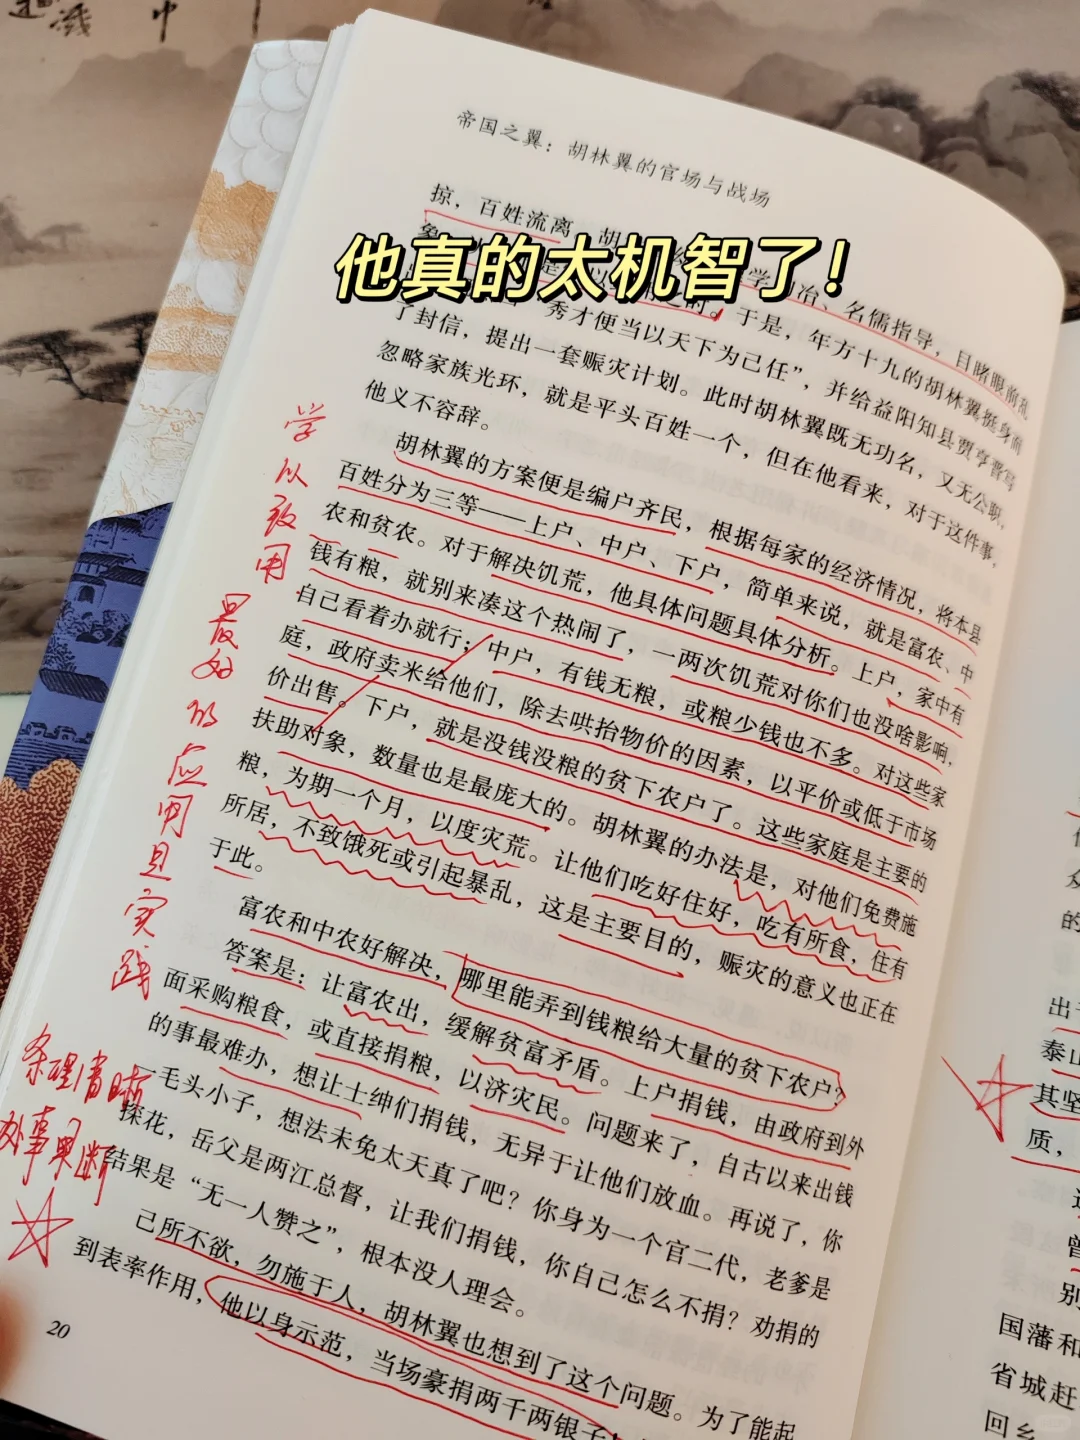 帝国之翼：胡林翼的官场与战场
掠，百姓流离
他真的太机智了！
学
冶、名儒指导，目睹眼前乱
于是，年方十九的胡林翼挺身而
秀才便当以天下为己任”，并给益阳知县贾亨晋写
了封信，提出一套赈灾计划。此时胡林翼既无功名，又无公职，
忽略家族光环，就是平头百姓一个，但在他看来，对于这件事，
他义不容辞。
胡林翼的方案便是编户齐民，根据每家的经济情况，将本县
百姓分为三等——上户、中户、下户，简单来说，就是富农、中
农和贫农。对于解决饥荒，他具体问题具体分析。上户，家中有
钱有粮，就别来凑这个热闹了，一两次饥荒对你们也没啥影响，
自己看着办就行；中户，有钱无粮，或粮少钱也不多。对这些家
庭，政府卖米给他们，除去哄抬物价的因素，以平价或低于市场
价出售。下户，就是没钱没粮的贫下农户了。这些家庭是主要的
扶助对象，数量也是最庞大的。胡林翼的办法是，对他们免费施
粮，为期一个月，以度灾荒。让他们吃好住好，吃有所食，住有
所居，不致饿死或引起暴乱，这是主要目的，赈灾的意义也正在
于此。
富农和中农好解决，哪里能弄到钱粮给大量的贫下农户？
答案是：让富农出，缓解贫富矛盾。上户捐钱，由政府到外
面采购粮食，或直接捐粮，以济灾民。问题来了，自古以来出钱
的事最难办，想让士绅们捐钱，无异于让他们放血。再说了，你
一毛头小子，想法未免太天真了吧？你身为一个官二代，老爹是
探花，岳父是两江总督，让我们捐钱，你自己怎么不捐？劝捐的
结果是“无一人赞之”，根本没人理会。
己所不欲，勿施于人，胡林翼也想到了这个问题。为了能起
到表率作用，他以身示范，当场豪捐两千两银子
20
学以致用
最好的应用且实践
条理清晰
处事果断
的
出
泰山
其坚
质，
曾
别
国藩和
省城赶
回乡